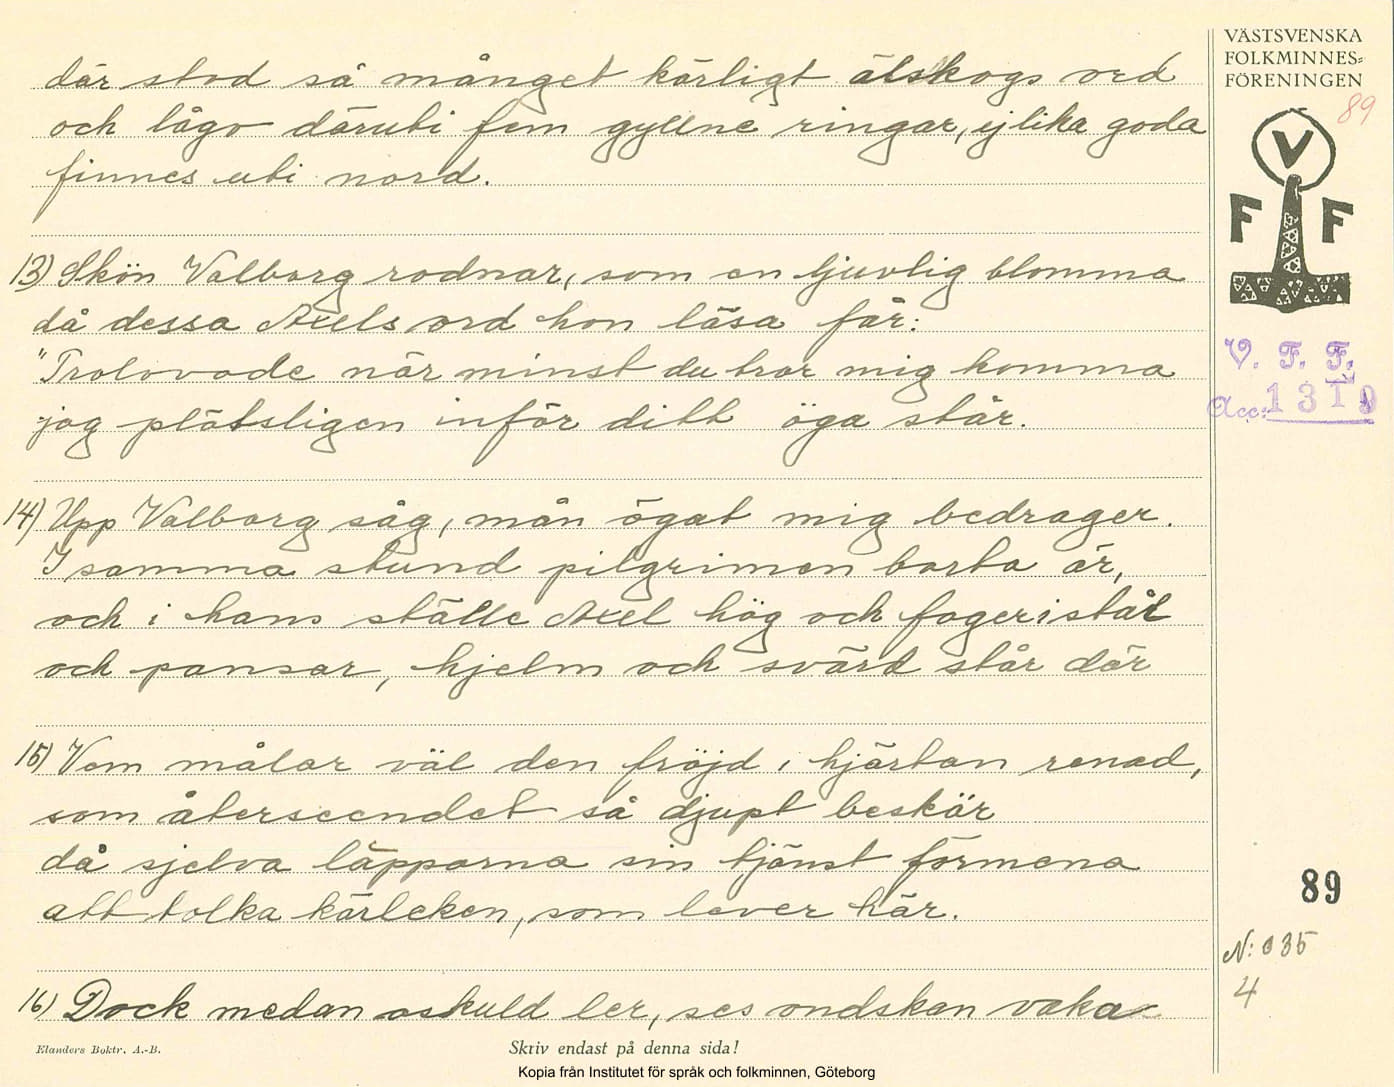 VÄSTSVENSKA
FOLKMINNES=
FÖRENINGEN
89
V
F F
V. F. F.
Acc: 1319
där stod så månget kärligt älskogs ord
och lågo däruti fem gyllne ringar, ej lika goda
finnes uti nord.
13) Skön Valborg rodnar, som en ljuvlig blomma
då dessa Axels ord hon läsa får:
"Trolovade när minst du tror mig komma
jag plötsligen inför ditt öga står.
14) Upp Valborg såg, mån ögat mig bedrager.
I samma stund pilgrimen borta är,
och i hans ställe Axel hög och fager i stål
och pansar, hjelm och svärd står där
15) Vem målar väl den fröjd i hjärtan renad,
som återseendet så djupt beskär
då sjelva läpparna sin tjänst förmena
att tolka kärleken, som lever här.
16) Dock medan oskuld ler, ses ondskan vaka
89
N: 035
4
Elanders Boktr. A.-B.
Skriv endast på denna sida!
Kopia från Institutet för språk och folkminnen, Göteborg